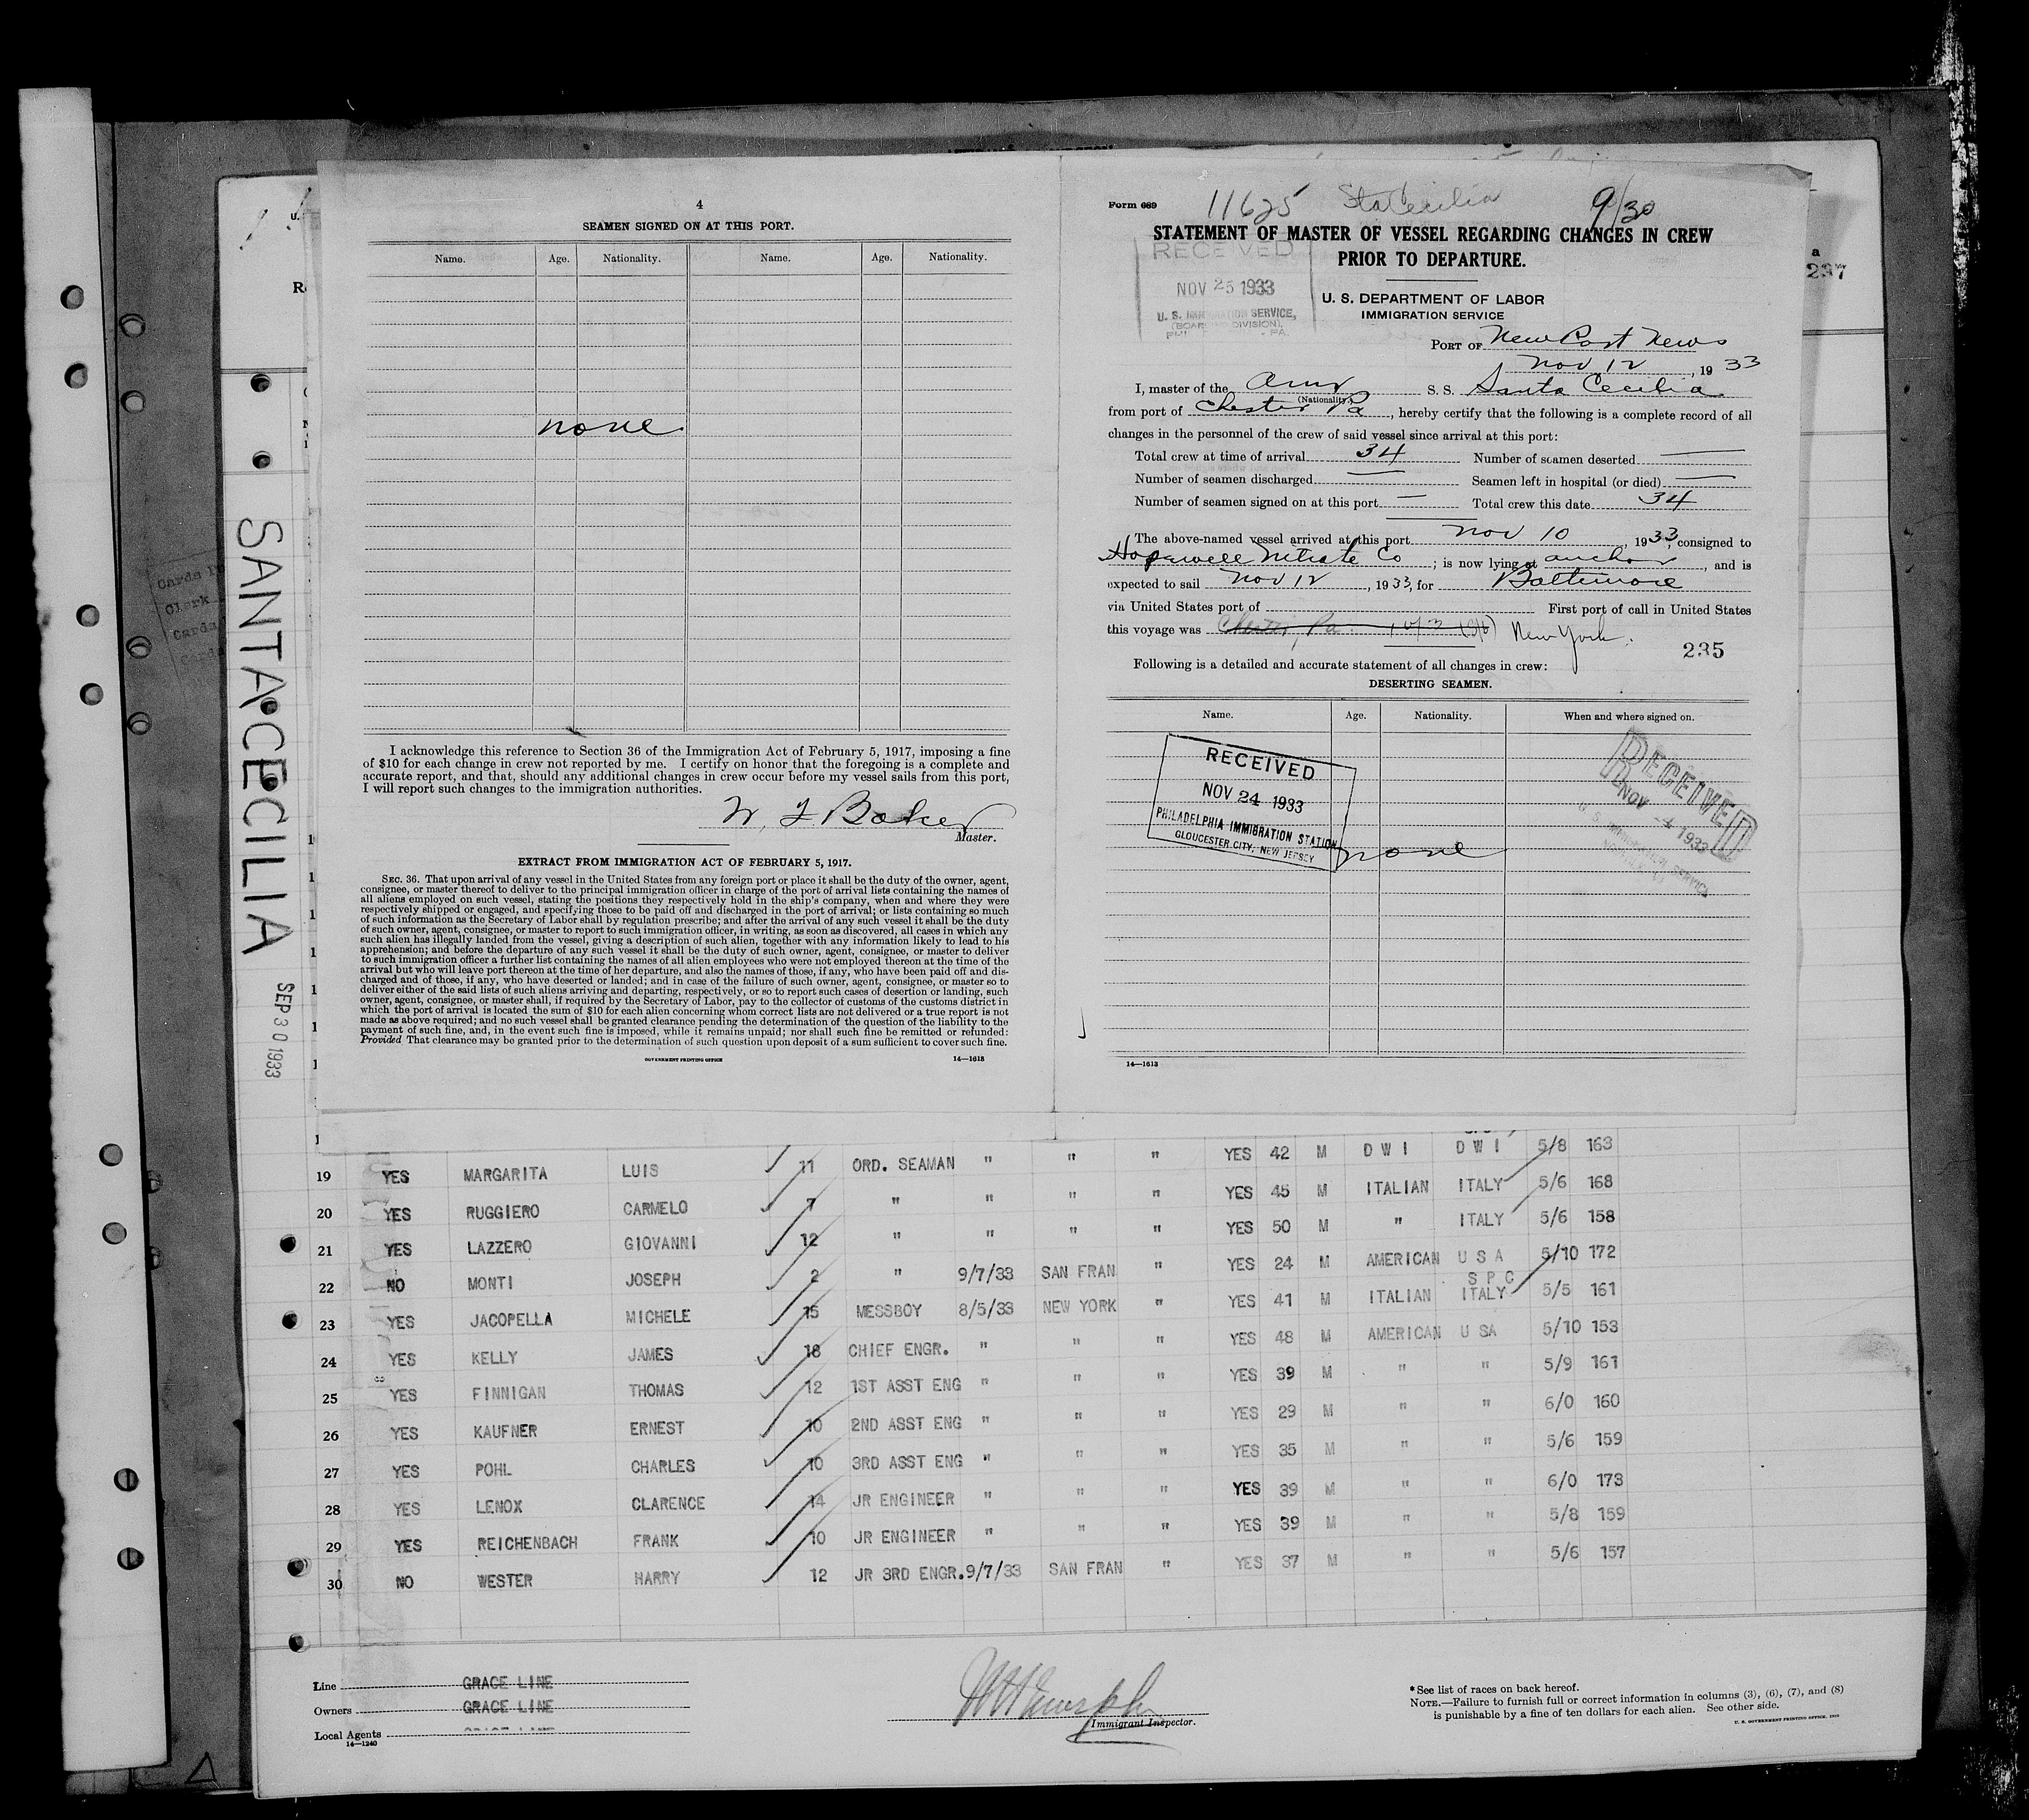 4
SEAMEN SIGNED ON AT THIS PORT.
Name. Age. Nationality. Name. Age. Nationality.
none
I acknowledge this reference to Section 36 of the Immigration Act of February 5, 1917, imposing a fine
of $10 for each change in crew not reported by me. I certify on honor that the foregoing is a complete and
accurate report, and that, should any additional changes in crew occur before my vessel sails from this port,
I will report such changes to the immigration authorities.
Master.
EXTRACT FROM IMMIGRATION ACT OF FEBRUARY 5, 1917.
SEC. 36. That upon arrival of any vessel in the United States from any foreign port or place it shall be the duty of the owner, agent,
consignee, or master thereof to deliver to the principal immigration officer in charge of the port of arrival lists containing the names of
all aliens employed on such vessel, stating the positions they respectively hold in the ship's company, when and where they were
respectively shipped or engaged, and specifying those to be paid off and discharged in the port of arrival; or lists containing so much
of such information as the Secretary of Labor shall by regulation prescribe; and after the arrival of any such vessel it shall be the duty
of such owner, agent, consignee, or master to report to such immigration officer, in writing, as soon as discovered, all cases in which any
such alien has illegally landed from the vessel, giving a description of such alien, together with any information likely to lead to his
apprehension; and before the departure of any such vessel it shall be the duty of such owner, agent, consignee, or master to deliver
to such immigration officer a further list containing the names of all alien employees who were not employed thereon at the time of the
arrival but who will leave port thereon at the time of her departure, and also the names of those, if any, who have been paid off and dis-
charged and of those, if any, who have deserted or landed; and in case of the failure of such owner, agent, consignee, or master so to
deliver either of the said lists of such aliens arriving and departing, respectively, or so to report such cases of desertion or landing, such
owner, agent, consignee, or master shall, if required by the Secretary of Labor, pay to the collector of customs of the customs district in
which the port of arrival is located the sum of $10 for each alien concerning whom correct lists are not delivered or a true report is not
made as above required; and no such vessel shall be granted clearance pending the determination of the question of the liability to the
payment of such fine, and, in the event such fine is imposed, while it remains unpaid; nor shall such fine be remitted or refunded:
Provided That clearance may be granted prior to the determination of such question upon deposit of a sum sufficient to cover such fine.
GOVERNMENT PRINTING OFFICE 14—1613
Form 689 11625 Sta Cecilia 9/30
STATEMENT OF MASTER OF VESSEL REGARDING CHANGES IN CREW
PRIOR TO DEPARTURE.
RECEIVED
NOV 25 1933
U. S. IMMIGRATION SERVICE,
U. S. DEPARTMENT OF LABOR
IMMIGRATION SERVICE
PORT OF New Port News
Nov 12, 1933
I, master of the Amr S. S. Santa Cecilia
(Nationality.)
from port of Chester Pa, hereby certify that the following is a complete record of all
changes in the personnel of the crew of said vessel since arrival at this port:
Total crew at time of arrival 34 Number of seamen deserted —
Number of seamen discharged — Seamen left in hospital (or died) —
Number of seamen signed on at this port — Total crew this date 34
The above-named vessel arrived at this port Nov 10, 1933, consigned to
Hopewell Nitrate Co; is now lying at anchor, and is
expected to sail Nov 12, 1933, for Baltimore
via United States port of First port of call in United States
this voyage was Chester, Pa New York.
235
Following is a detailed and accurate statement of all changes in crew:
DESERTING SEAMEN.
Name. Age. Nationality. When and where signed on.
RECEIVED
NOV 24 1933
PHILADELPHIA IMMIGRATION STATION
GLOUCESTER CITY, NEW JERSEY
RECEIVED
NOV -4 1933
none
14—1613
237
SANTA CECILIA
SEP 30 1933
YES 42 M D W I D W I 5/8 163
19 YES MARGARITA LUIS 11 ORD. SEAMAN " " " YES 45 M ITALIAN ITALY 5/6 168
20 YES RUGGIERO CARMELO 7 " " " " YES 50 M " ITALY 5/6 158
21 YES LAZZERO GIOVANNI 12 " " " " YES 24 M AMERICAN U S A 5/10 172
22 NO MONTI JOSEPH 2 " 9/7/33 SAN FRAN " YES 41 M ITALIAN S P C ITALY 5/5 161
23 YES JACOPELLA MICHELE 15 MESSBOY 8/5/33 NEW YORK " YES 48 M AMERICAN U SA 5/10 153
24 YES KELLY JAMES 18 CHIEF ENGR. " " " YES 39 M " " 5/9 161
25 YES FINNIGAN THOMAS 12 1ST ASST ENG " " " YES 29 M " " 6/0 160
26 YES KAUFNER ERNEST 10 2ND ASST ENG " " " YES 35 M " " 5/6 159
27 YES POHL CHARLES 10 3RD ASST ENG " " " YES 39 M " " 6/0 173
28 YES LENOX CLARENCE 14 JR ENGINEER " " " YES 39 M " " 5/8 159
29 YES REICHENBACH FRANK 10 JR ENGINEER " " " YES 37 M " " 5/6 157
30 NO WESTER HARRY 12 JR 3RD ENGR. 9/7/33 SAN FRAN "
Line GRACE LINE
Owners GRACE LINE
Local Agents GRACE LINE
14—1240
Immigrant Inspector.
*See list of races on back hereof.
NOTE.—Failure to furnish full or correct information in columns (3), (6), (7), and (8)
is punishable by a fine of ten dollars for each alien. See other side.
U. S. GOVERNMENT PRINTING OFFICE